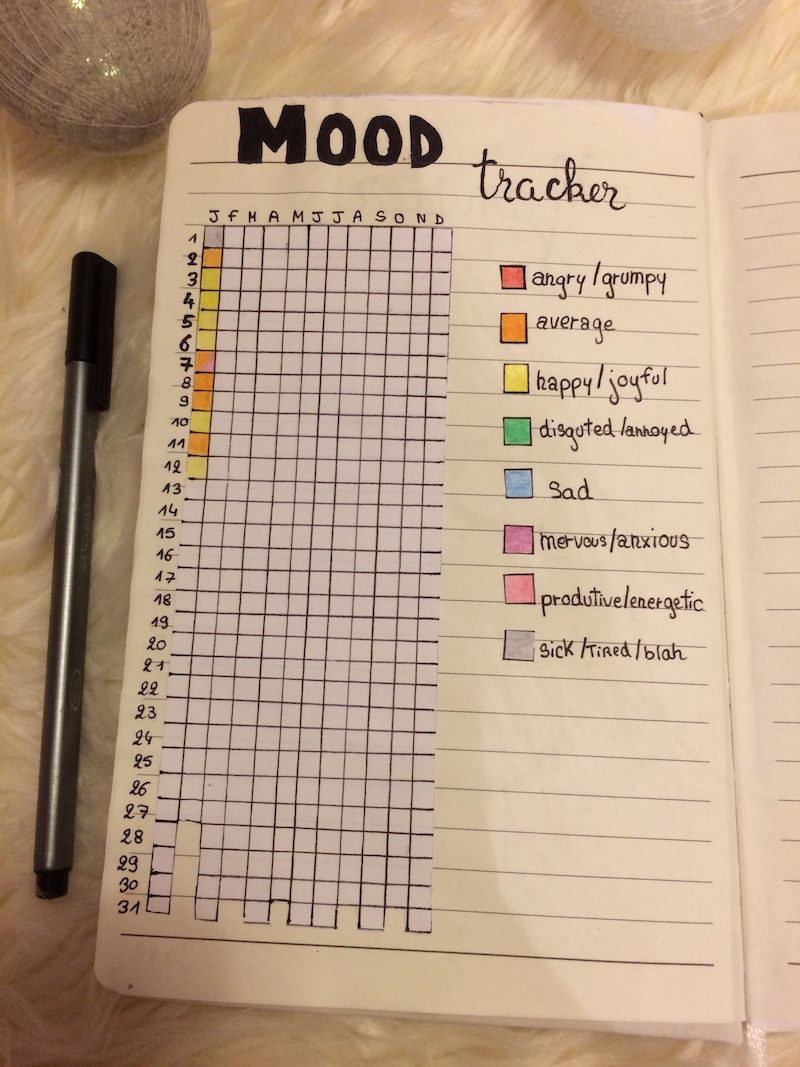 MOOD
tracker
J F M A M J J A S O N D
1
2
3
4
5
6
7
8
9
10
11
12
13
14
15
16
17
18
19
20
21
22
23
24
25
26
27
28
29
30
31
angry/grumpy
average
happy/joyful
disguted/annoyed
sad
mervous/anxious
produtive/energetic
sick/TiRed/blah